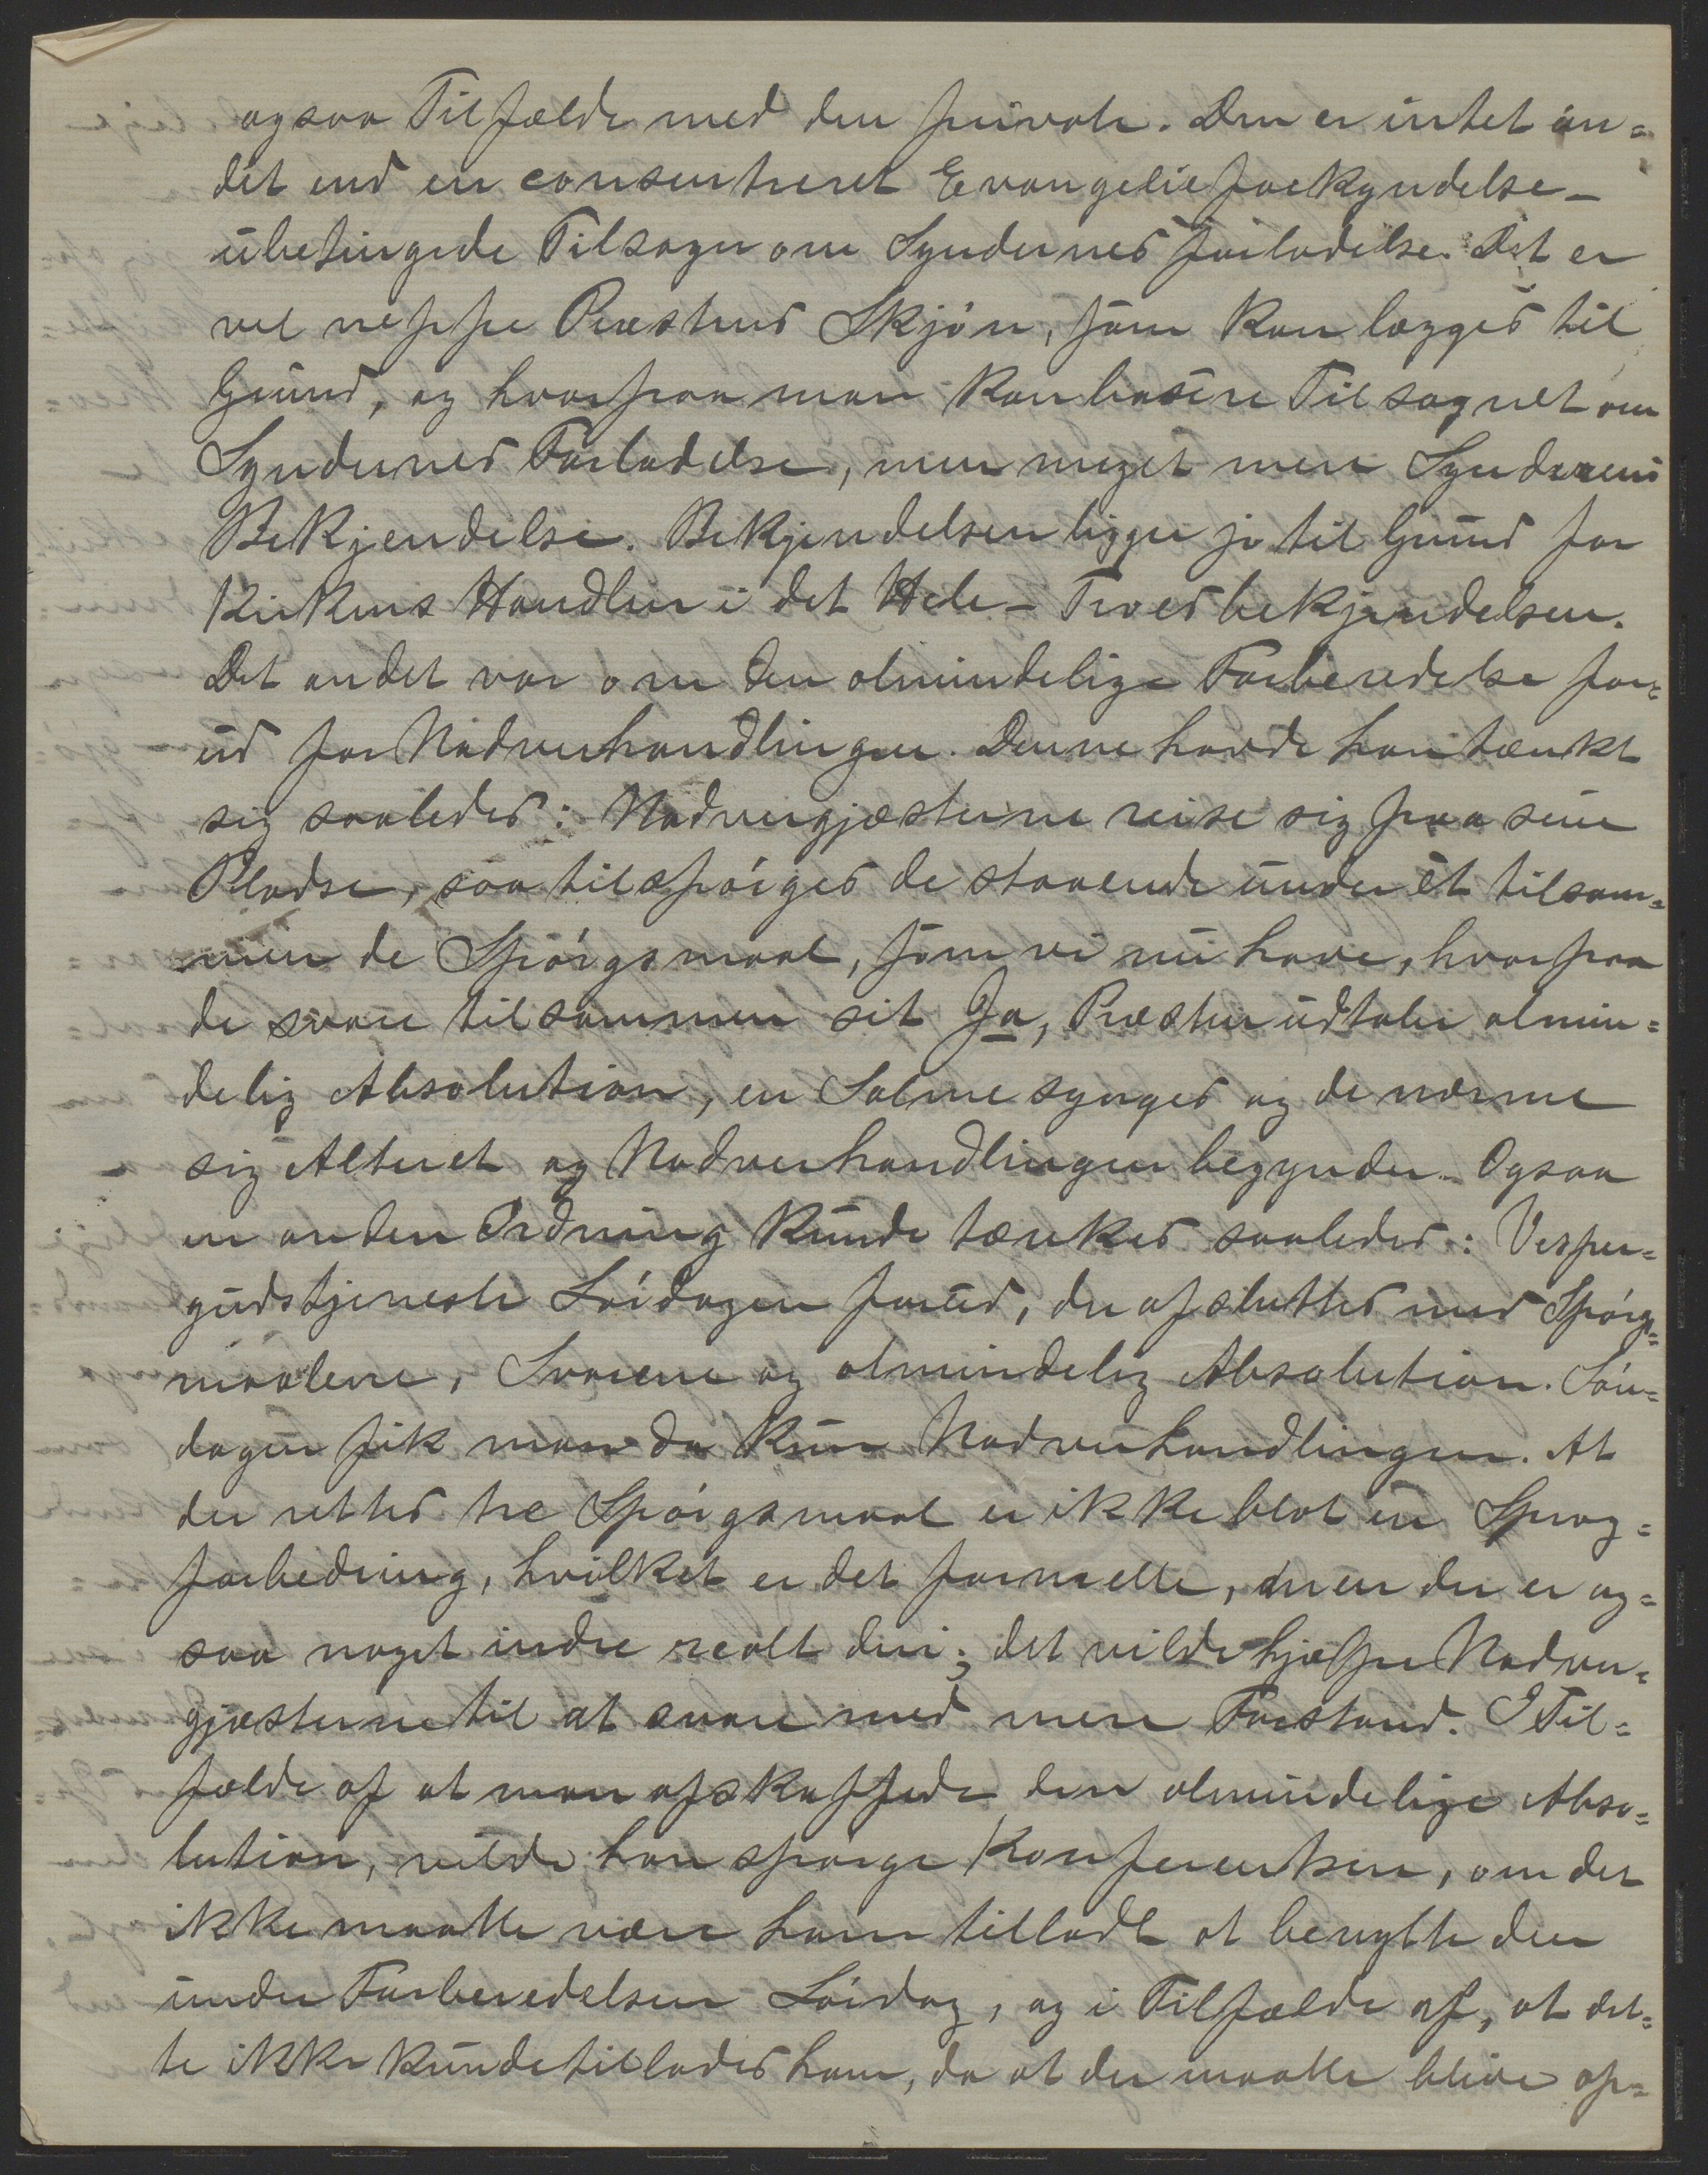 ogsaa Tilfælde med den private. Den er intet an=
det end en consentreret Evangelieforkyndelse –
ubetingede Tilsagn om Syndernes Forladelse. Det er
vel neppe Præstens Skjön, som kan lægges til
Grund, og hvorpaa man kan basere Tilsagnet om
Syndernes Forladelse, men meget mere Synderens
Bekjendelse. Bekjendelsen ligger jo til Grund for
Kirkens Handlen i det Hele – Troesbekjendelsen.
Det andet var om den almindelige Forberedelse for=
ud for Nadverhandlingen. Denne havde han tænkt
sig saaledes: Nadvergjæsterne reise sig fra sine
Pladse, saa tilspörges de staaende under ét tilsam=
men de Spörgsmaal, som vi nu have, hvorpaa
de svare tilsammen sit Ja, Præsten udtaler almin=
delig Absolution, en Salme synges og de nærme
sig Alteret og Nadverhandlingen begynder. Ogsaa
en anden Ordning kunde tænkes saaledes: Vesper=
gudstjeneste Löidagen forud, der afsluttes med Spörgs=
maalene, Svarene og almindelig Absolution. Sön=
dagen fik man da kun Nadverhandlingen. At
der rettes tre Spörgsmaal er ikke blot en Sprog=
forbedring, hvilket er det formelle, men der er og=
saa noget indre realt deri; det vilde hjælpe Nadver=
gjæsterne til at svare med mere Forstand. I Til=
fælde af at man afskaffede den almindelige Abso=
lution, vilde han spørge Konferentsen, om det
ikke maatte være ham tilladt at benytte den
under Forberedelsen Löidag, og i Tilfælde af, at det=
te ikke kunde tillades ham, da at der maatte blive op=